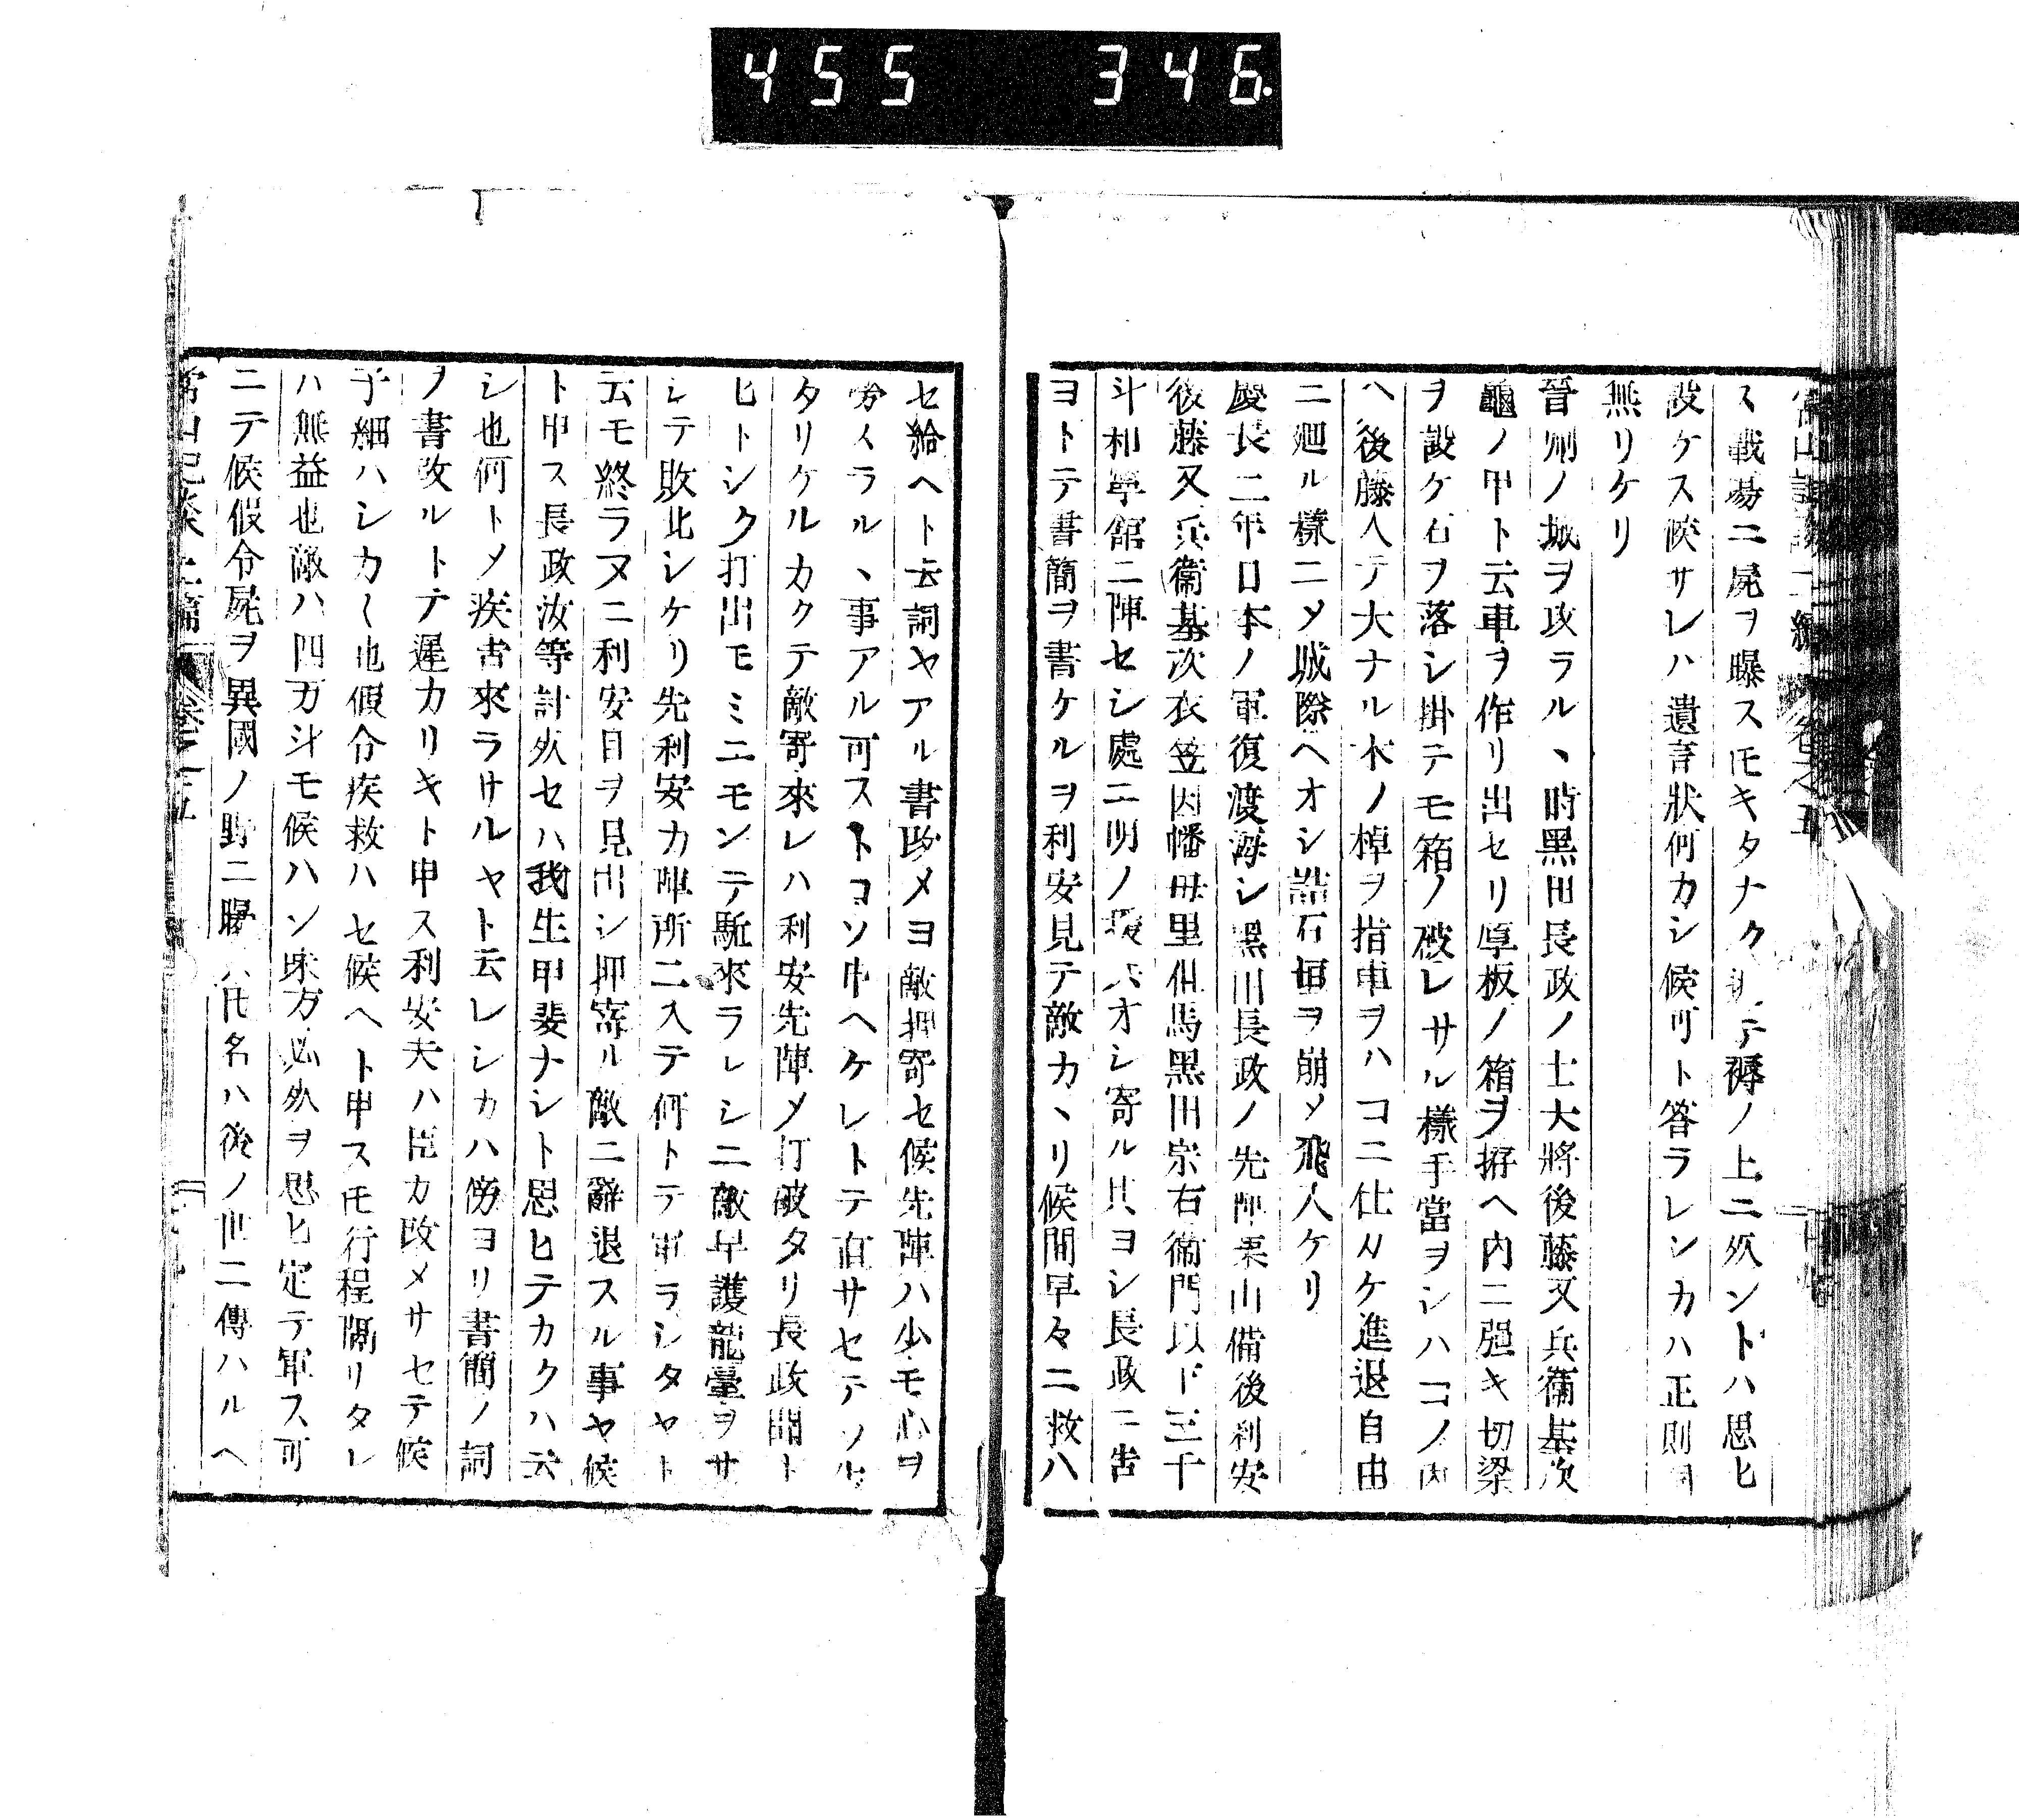 455 346.
ス戰場ニ屍ヲ曝ス𪜈キタナクテ褥ノ上ニ死ントハ思ヒ
設ケス候サレハ遺言狀何カシ候可ト答ラレシカハ正則
無リケリ
晉州ノ城ヲ攻ラル丶時黑田長政ノ士大將後藤又兵衞基次
龜ノ甲ト云車ヲ作リ出セリ厚板ノ箱ヲ拵ヘ内ニ强キ切梁
ヲ設ケ石ヲ落シ掛テモ箱ノ破レサル樣手當ヲシハコノ内
ヘ後藤人テ大ナル木ノ棹ヲ指車ヲハコニ仕カケ進退自由
ニ廻ル樣ニメ城際ヘオシ詰石垣ヲ崩メ飛入ケリ
慶長二年日本ノ軍復渡海シ黑田長政ノ先陣栗山備後利安
後藤又兵衞基次衣笠因幡母里但馬黑田宗右衞門以下三千
斗稷寧館ニ陣セシ處ニ明ノ援兵オシ寄ル其ヨシ長政ニ吿
ヨトテ書簡ヲ書ケルヲ利安見テ敵カ丶リ候間早々ニ救ハ
セ給ヘト云詞ヤアル書改メヨ敵押寄セ候先陣ハ少モ心ヲ
勞メラル丶事アル可ストコソ申ヘケレトテ直サセテソ
タリケルカクテ敵寄來レハ利安先陣メ打破タリ長政聞ト
ヒトシク打出モミニモンテ駈來ラレシニ敵早護龍臺ヲサ
シテ敗北シケリ先利安カ陣所ニ入テ何トテ軍ラシタヤト
云モ終ラヌニ利安目ヲ見出シ押寄ル敵ニ辭退スル事ヤ候
ト申ス長政汝等討死セハ我生甲斐ナシト思ヒテカクハ云
シ也何トメ疾吿來ラサルヤト云レシカハ傍ヨリ書簡ノ詞
ヲ書改ルトテ遲カリキト申ス利安夫ハ臣カ改メサセテ候
子細ハシカ〱也假令疾救ハセ候ヘト申ス𪜈行程隔リタレ
ハ無益也敵ハ四万斗モ候ハン味方必死ヲ思ヒ定テ軍ス可
ニテ候假令屍ヲ異國ノ野ニ曝ハ𪜈名ハ後ノ世ニ傳ハルヘ